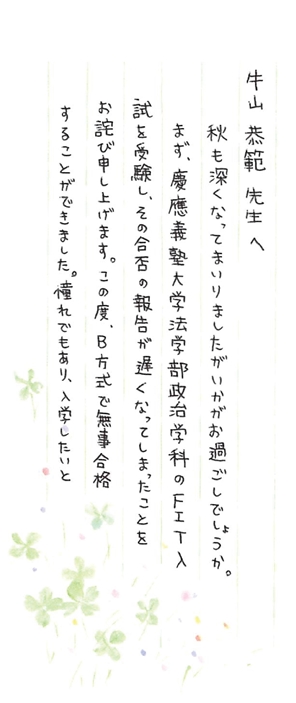 牛山 恭範 先生 へ
秋も深くなってまいりましたがいかがお過ごしでしょうか。
まず、慶應義塾大学法学部政治学科のFIT入
試を受験し、その合否の報告が遅くなってしまったことを
お詫び申し上げます。この度、B方式で無事合格
することができました。憧れでもあり、入学したいと